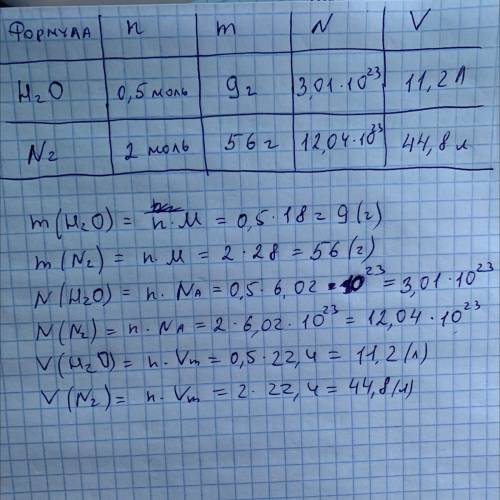 Формула n m N V
H₂O 0,5 моль 9 г 3,01·10²³ 11,2 л
N₂ 2 моль 56 г 12,04·10²³ 44,8 л
m(H₂O) = n·M = 0,5·18 = 9 (г)
m(N₂) = n·M = 2·28 = 56 (г)
N(H₂O) = n·Nᴀ = 0,5·6,02·10²³ = 3,01·10²³
N(N₂) = n·Nᴀ = 2·6,02·10²³ = 12,04·10²³
V(H₂O) = n·Vₘ = 0,5·22,4 = 11,2 (л)
V(N₂) = n·Vₘ = 2·22,4 = 44,8 (л)